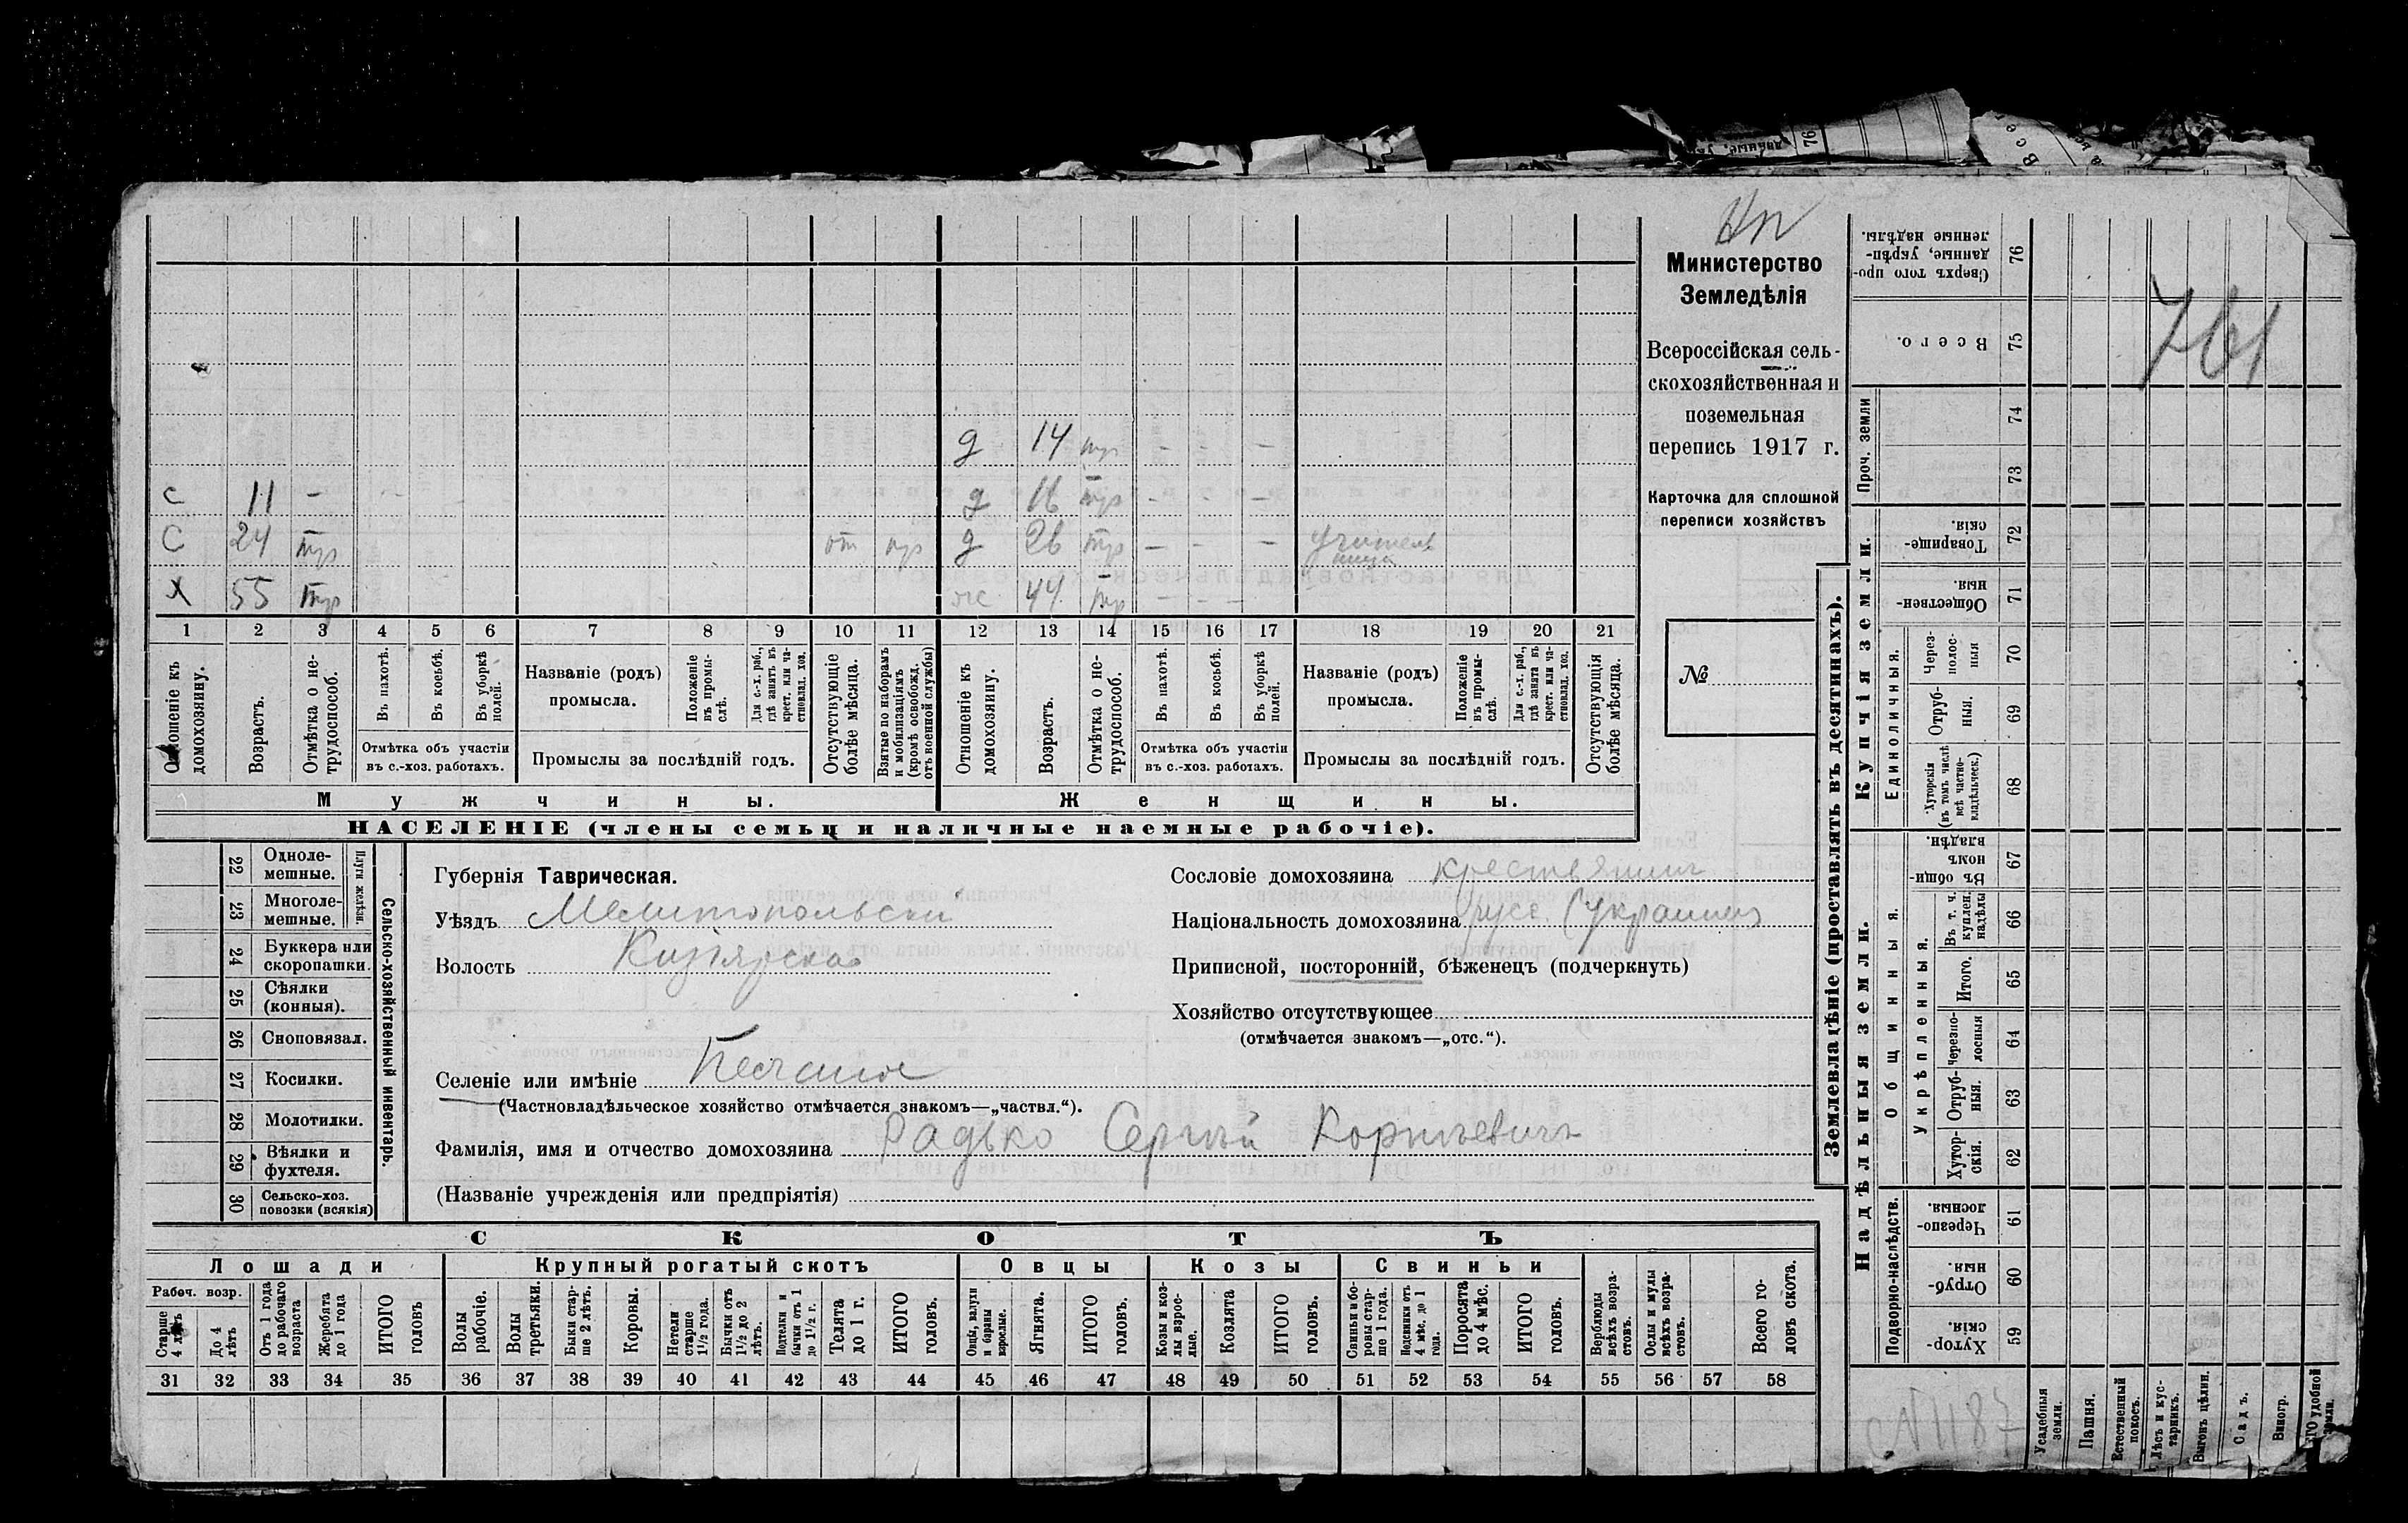 Нп
Министерство
Земледѣлія
Всероссійская сель-
скохозяйственная и
поземельная
перепись 1917 г.
Карточка для сплошной
переписи хозяйствъ
№
761
д 14 тр - - -
с 11 - - - д 16 тр - - -
с 24 тр от пр д 26 тр - - - учитель
ница
х 55 тр ж 44 тр - - -
1 2 3 4 5 6 7 8 9 10 11 12 13 14 15 16 17 18 19 20 21
Отношеніе къ
домохозяину.
Возрастъ.
Отмѣтка о не-
трудоспособ.
Въ пахотѣ.
Въ косьбѣ.
Въ уборкѣ
полей.
Отмѣтка объ участіи
въ с.-хоз. работахъ.
Названіе (родъ)
промысла.
Положеніе
въ промы-
слѣ.
Для с.-х. раб.,
гдѣ занятъ въ
крест. или ча-
стновлад. хоз.
Промыслы за послѣдній годъ.
Отсутствующіе
болѣе мѣсяца.
Взятые по наборамъ
и мобилизаціямъ
(кромѣ освобожд.
отъ военной службы)
Отношеніе къ
домохозяину.
Возрастъ.
Отмѣтка о не-
трудоспособ.
Въ пахотѣ.
Въ косьбѣ.
Въ уборкѣ
полей.
Отмѣтка объ участіи
въ с.-хоз. работахъ.
Названіе (родъ)
промысла.
Положеніе
въ промы-
слѣ.
Для с.-х. раб.,
гдѣ занята въ
крест. или ча-
стновлад. хоз.
Промыслы за послѣдній годъ.
Отсутствующія
болѣе мѣсяца.
Мужчины.
Женщины.
НАСЕЛЕНІЕ (члены семьи и наличные наемные рабочіе).
22 Одноле-
мешные.
23 Многоле-
мешные.
Плуги желѣзн.
24 Буккера или
скоропашки.
25 Сѣялки
(конныя).
26 Сноповязал.
27 Косилки.
28 Молотилки.
29 Вѣялки и
фухтеля.
30 Сельско-хоз.
повозки (всякія)
Сельско-хозяйственный инвентарь.
Губернія Таврическая.
Уѣздъ Мелитопольскій
Волость Кизіярская
Селеніе или имѣніе Песчаное
(Частновладѣльческое хозяйство отмѣчается знакомъ—„частвл.“).
Фамилія, имя и отчество домохозяина Радько Сергѣй Корнѣевичъ
(Названіе учрежденія или предпріятія)
Сословіе домохозяина крестьянин
Національность домохозяина русс. (украинец
Приписной, посторонній, бѣженецъ (подчеркнуть)
Хозяйство отсутствующее
(отмѣчается знакомъ—„отс.“).
СКОТЪ
Лошади
Крупный рогатый скотъ
Овцы
Козы
Свиньи
Рабоч. возр.
Старше
4 лѣтъ
До 4
лѣтъ
Отъ 1 года
до рабочаго
возраста
Жеребята
до 1 года
ИТОГО
головъ
Волы
рабочіе.
Волы
третьяки.
Быки стар-
ше 2 лѣтъ.
Коровы.
Нетели
старше
1½ года.
Бычки отъ
1½ до 2
лѣтъ.
Подтелки и
бычки отъ 1
до 1½ г.
Телята
до 1 г.
ИТОГО
головъ.
Овцы, валухи
и бараны
взрослые.
Ягнята.
ИТОГО
головъ.
Козы и коз-
лы взрос-
лые.
Козлята
ИТОГО
головъ.
Свиньи и бо-
ровы стар-
ше 1 года.
Подсвинки отъ
4 мѣс. до 1
года.
Поросята
до 4 мѣс.
ИТОГО
головъ.
Верблюды
всѣхъ возра-
стовъ.
Ослы и мулы
всѣхъ возра-
стовъ.
Всего го-
ловъ скота.
31 32 33 34 35 36 37 38 39 40 41 42 43 44 45 46 47 48 49 50 51 52 53 54 55 56 57 58
Землевладѣніе (проставлять въ десятинахъ).
Сверхъ того про-
данные, укрѣп-
ленные надѣлы. 76
Всего. 75
Проч. земли
74
73
Купчія земли.
Товарище-
скія. 72
Обществен-
ныя. 71
Единоличныя.
Через-
полос-
ныя 70
Отруб-
ныя. 69
Хуторскія
(въ томъ числѣ
всѣ частно-
владѣльческ.) 68
Надѣльныя земли.
Общинныя.
Въ общин-
номъ
владѣн. 67
Укрѣпленныя.
Въ т. ч.
куплен.
надѣлы 66
Итого. 65
Черезпо-
лосныя 64
Отруб-
ныя. 63
Хутор-
скія. 62
Подворно-наслѣдств.
Черезпо-
лосныя. 61
Отруб-
ныя. 60
Хутор-
скія. 59
Усадебныя
земли.
Пашня.
Естественный
покосъ.
Лѣсъ и кус-
тарникъ.
Выгонъ цѣлин.
Садъ.
Виногр.
удобной
земли.